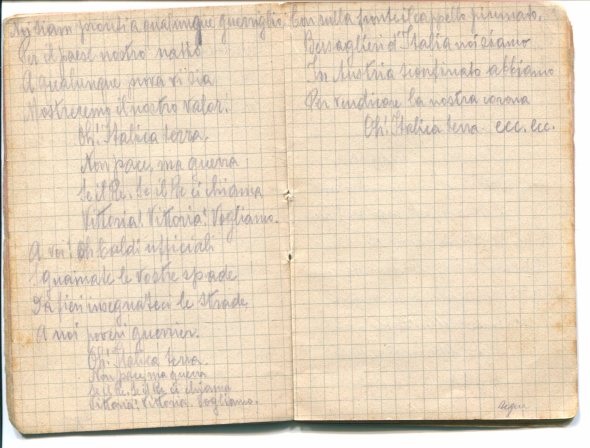 Noi siam pronti a qualunque guerriglia
Per il paese nostro natto
A qualunque nova vi sia
Mostreremo il nostro valor!
Oh! Italica terra.
Non pace, ma guerra
Se il Re. Se il Re ci chiama
Vittoria! Vittoria! Vogliamo.
A voi! Oh baldi ufficiali
Sguainate le vostre spade
Da fieri insegnateci le strade,
A noi poveri guerrier.
Oh! Italica terra.
Non pace, ma guerra
Se il Re. Se il Re ci chiama
Vittoria! Vittoria. Vogliamo.
Con sulla fronte il cappello piumato,
Bersaglieri d'Italia noi siamo
In Austria sconfinato abbiamo
Per vendicare la nostra corona
Oh! Italica terra ecc. ecc.